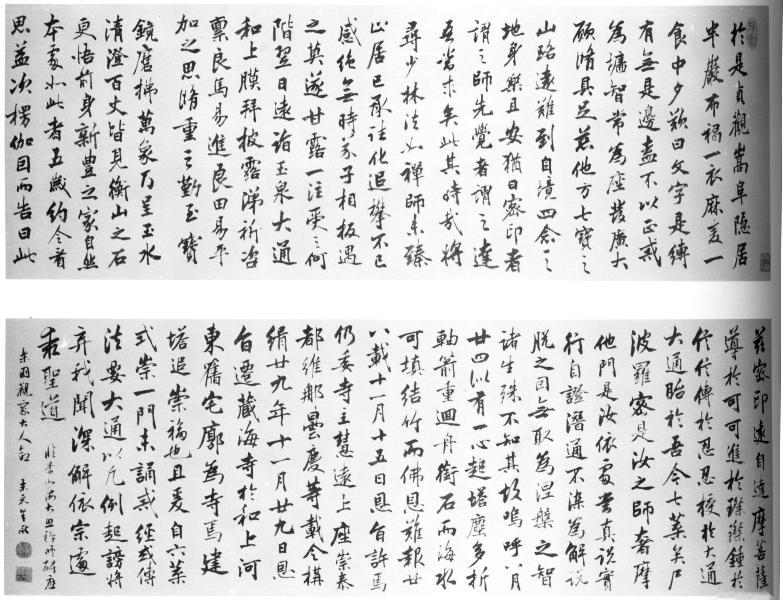 於是貞觀嵩阜隱居
半巖布褐一衣麻麦一
食中夕歎曰文字是縛
有無是邊盍不以正戒
為牆智常為座發廣大
願脩具足慈他方七寶之
山路遠難到自境四念之
地身樂且安猶曰密印者
謂之師先覺者謂之達
吾當求矣此其時哉將
尋少林法如禪師未臻
止居已承往化追攀不已
感絕無時芥子相投遇
之莫遂甘露一注受之何
階翌日遠詣玉泉大通
和上膜拜披露涕祈咨
禀良馬易進良田易平
加之思脩重之勤至寶
鏡磨拂萬象乃呈玉水
清澄百丈皆見衡山之石
更悟前身新豐之家自然
本處如此者五歲約令看
思益次楞伽因而告曰此
兹密印遠自達摩菩薩
導於可可進於璨璨鍾於
信信傳於忍忍授於大通
大通貽於吾今七葉矣尸
波羅密是汝之師奢摩
他門是汝依處當真說實
行自證潛通不染為解說
脫之因無取為涅槃之智
諸生殊不知其故嗚呼八月
廿四以有一心起塔塵多折
軸箭重迴舟銜石而海水
可填結竹而佛恩難報廿
八載十一月十五日恩旨許焉
仍委寺主慧遠上座崇泰
都維那曇慶等載令搆
緝廿九年十一月廿九日恩
旨遷藏海寺於和上河
東舊宅廓為寺焉建
塔追崇福也且夏自六葉
式崇一門未誦戒經或傳
法要大通以凡例起謗將
弃我聞深解依宗遽
求聖道
大照禪師碑應
東羽觀察大人